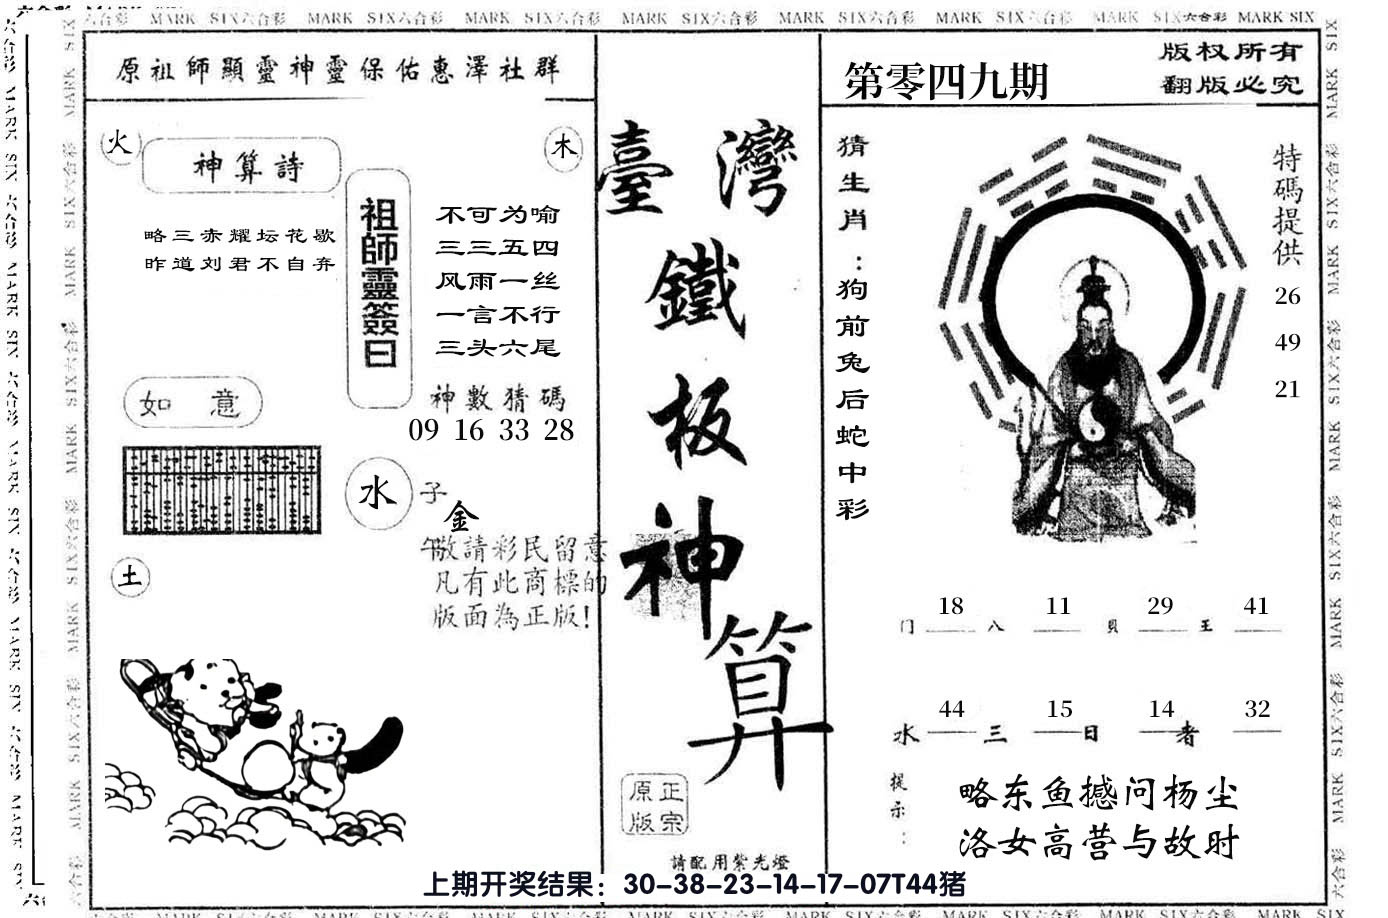 MARK SIX六合彩 MARK SIX六合彩 MARK SIX六合彩 MARK SIX六合彩 MARK SIX六合彩 MARK SIX六合彩 MARK SIX六合彩 MARK SIX
原祖師顯靈神靈保佑惠澤社群
火
神算詩
木
略三赤耀坛花歇
昨道刘君不自弃
祖師靈簽曰
不可为喻
三三五四
风雨一丝
一言不行
三头六尾
神數猜碼
09 16 33 28
如意
水
子
金
午
敬請彩民留意
凡有此商標的
版面為正版!
土
臺灣
鐵
板
神
算
原正
版宗
請配用紫光燈
第零四九期
版权所有
翻版必究
猜生肖:狗前兔后蛇中彩
特碼提供
26
49
21
18 11 29 41
门 八 貝 王
44 15 14 32
水 三 日 者
提示:
略东鱼撼问杨尘
洛女高营与故时
上期开奖结果：30-38-23-14-17-07T44猪